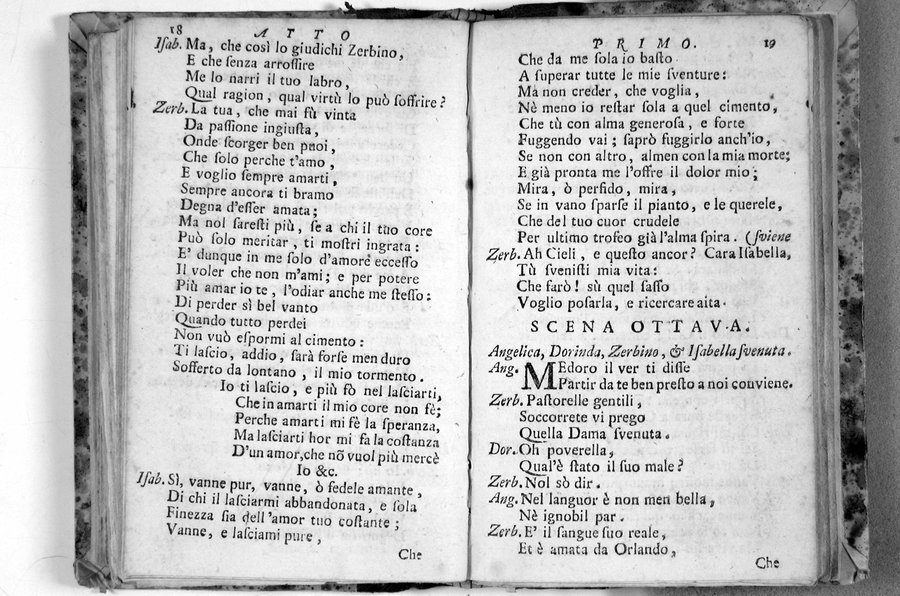 18 ATTO
Isab. Ma, che così lo giudichi Zerbino,
E che senza arrossire
Me lo narri il tuo labro,
Qual ragion, qual virtù lo può soffrire?
Zerb. La tua, che mai fù vinta
Da passione ingiusta,
Onde scorger ben puoi,
Che solo perche t'amo,
E voglio sempre amarti,
Sempre ancora ti bramo
Degna d'esser amata;
Ma nol saresti più, se a chi il tuo core
Può solo meritar, ti mostri ingrata:
E' dunque in me solo d'amore eccesso
Il voler che non m'ami; e per potere
Più amar io te, l'odiar anche me stesso:
Di perder sì bel vanto
Quando tutto perdei
Non vuò espormi al cimento:
Ti lascio, addio, sarà forse men duro
Sofferto da lontano, il mio tormento.
Io ti lascio, e più fò nel lasciarti,
Che in amarti il mio core non fè;
Perche amarti mi fè la speranza,
Ma lasciarti hor mi fa la costanza
D'un amor, che nõ vuol più mercè
Io &c.
Isab. Sì, vanne pur, vanne, ò fedele amante,
Di chi il lasciarmi abbandonata, e sola
Finezza sia dell'amor tuo costante;
Vanne, e lasciami pure,
Che
PRIMO. 19
Che da me sola io basto
A superar tutte le mie sventure:
Ma non creder, che voglia,
Nè meno io restar sola a quel cimento,
Che tù con alma generosa, e forte
Fuggendo vai; saprò fuggirlo anch'io,
Se non con altro, almen con la mia morte;
E già pronta me l'offre il dolor mio;
Mira, ò perfido, mira,
Se in vano sparse il pianto, e le querele,
Che del tuo cuor crudele
Per ultimo trofeo già l'alma spira. (sviene
Zerb. Ah Cieli, e questo ancor? Cara Isabella,
Tù svenisti mia vita:
Che farò! sù quel sasso
Voglio posarla, e ricercare aita.
SCENA OTTAVA.
Angelica, Dorinda, Zerbino, & Isabella svenuta.
Ang. MEdoro il ver ti disse
Partir da te ben presto a noi conviene.
Zerb. Pastorelle gentili,
Soccorrete vi prego
Quella Dama svenuta.
Dor. Oh poverella,
Qual'è stato il suo male?
Zerb. Nol sò dir.
Ang. Nel languor è non men bella,
Nè ignobil par.
Zerb. E' il sangue suo reale,
Et è amata da Orlando,
Che